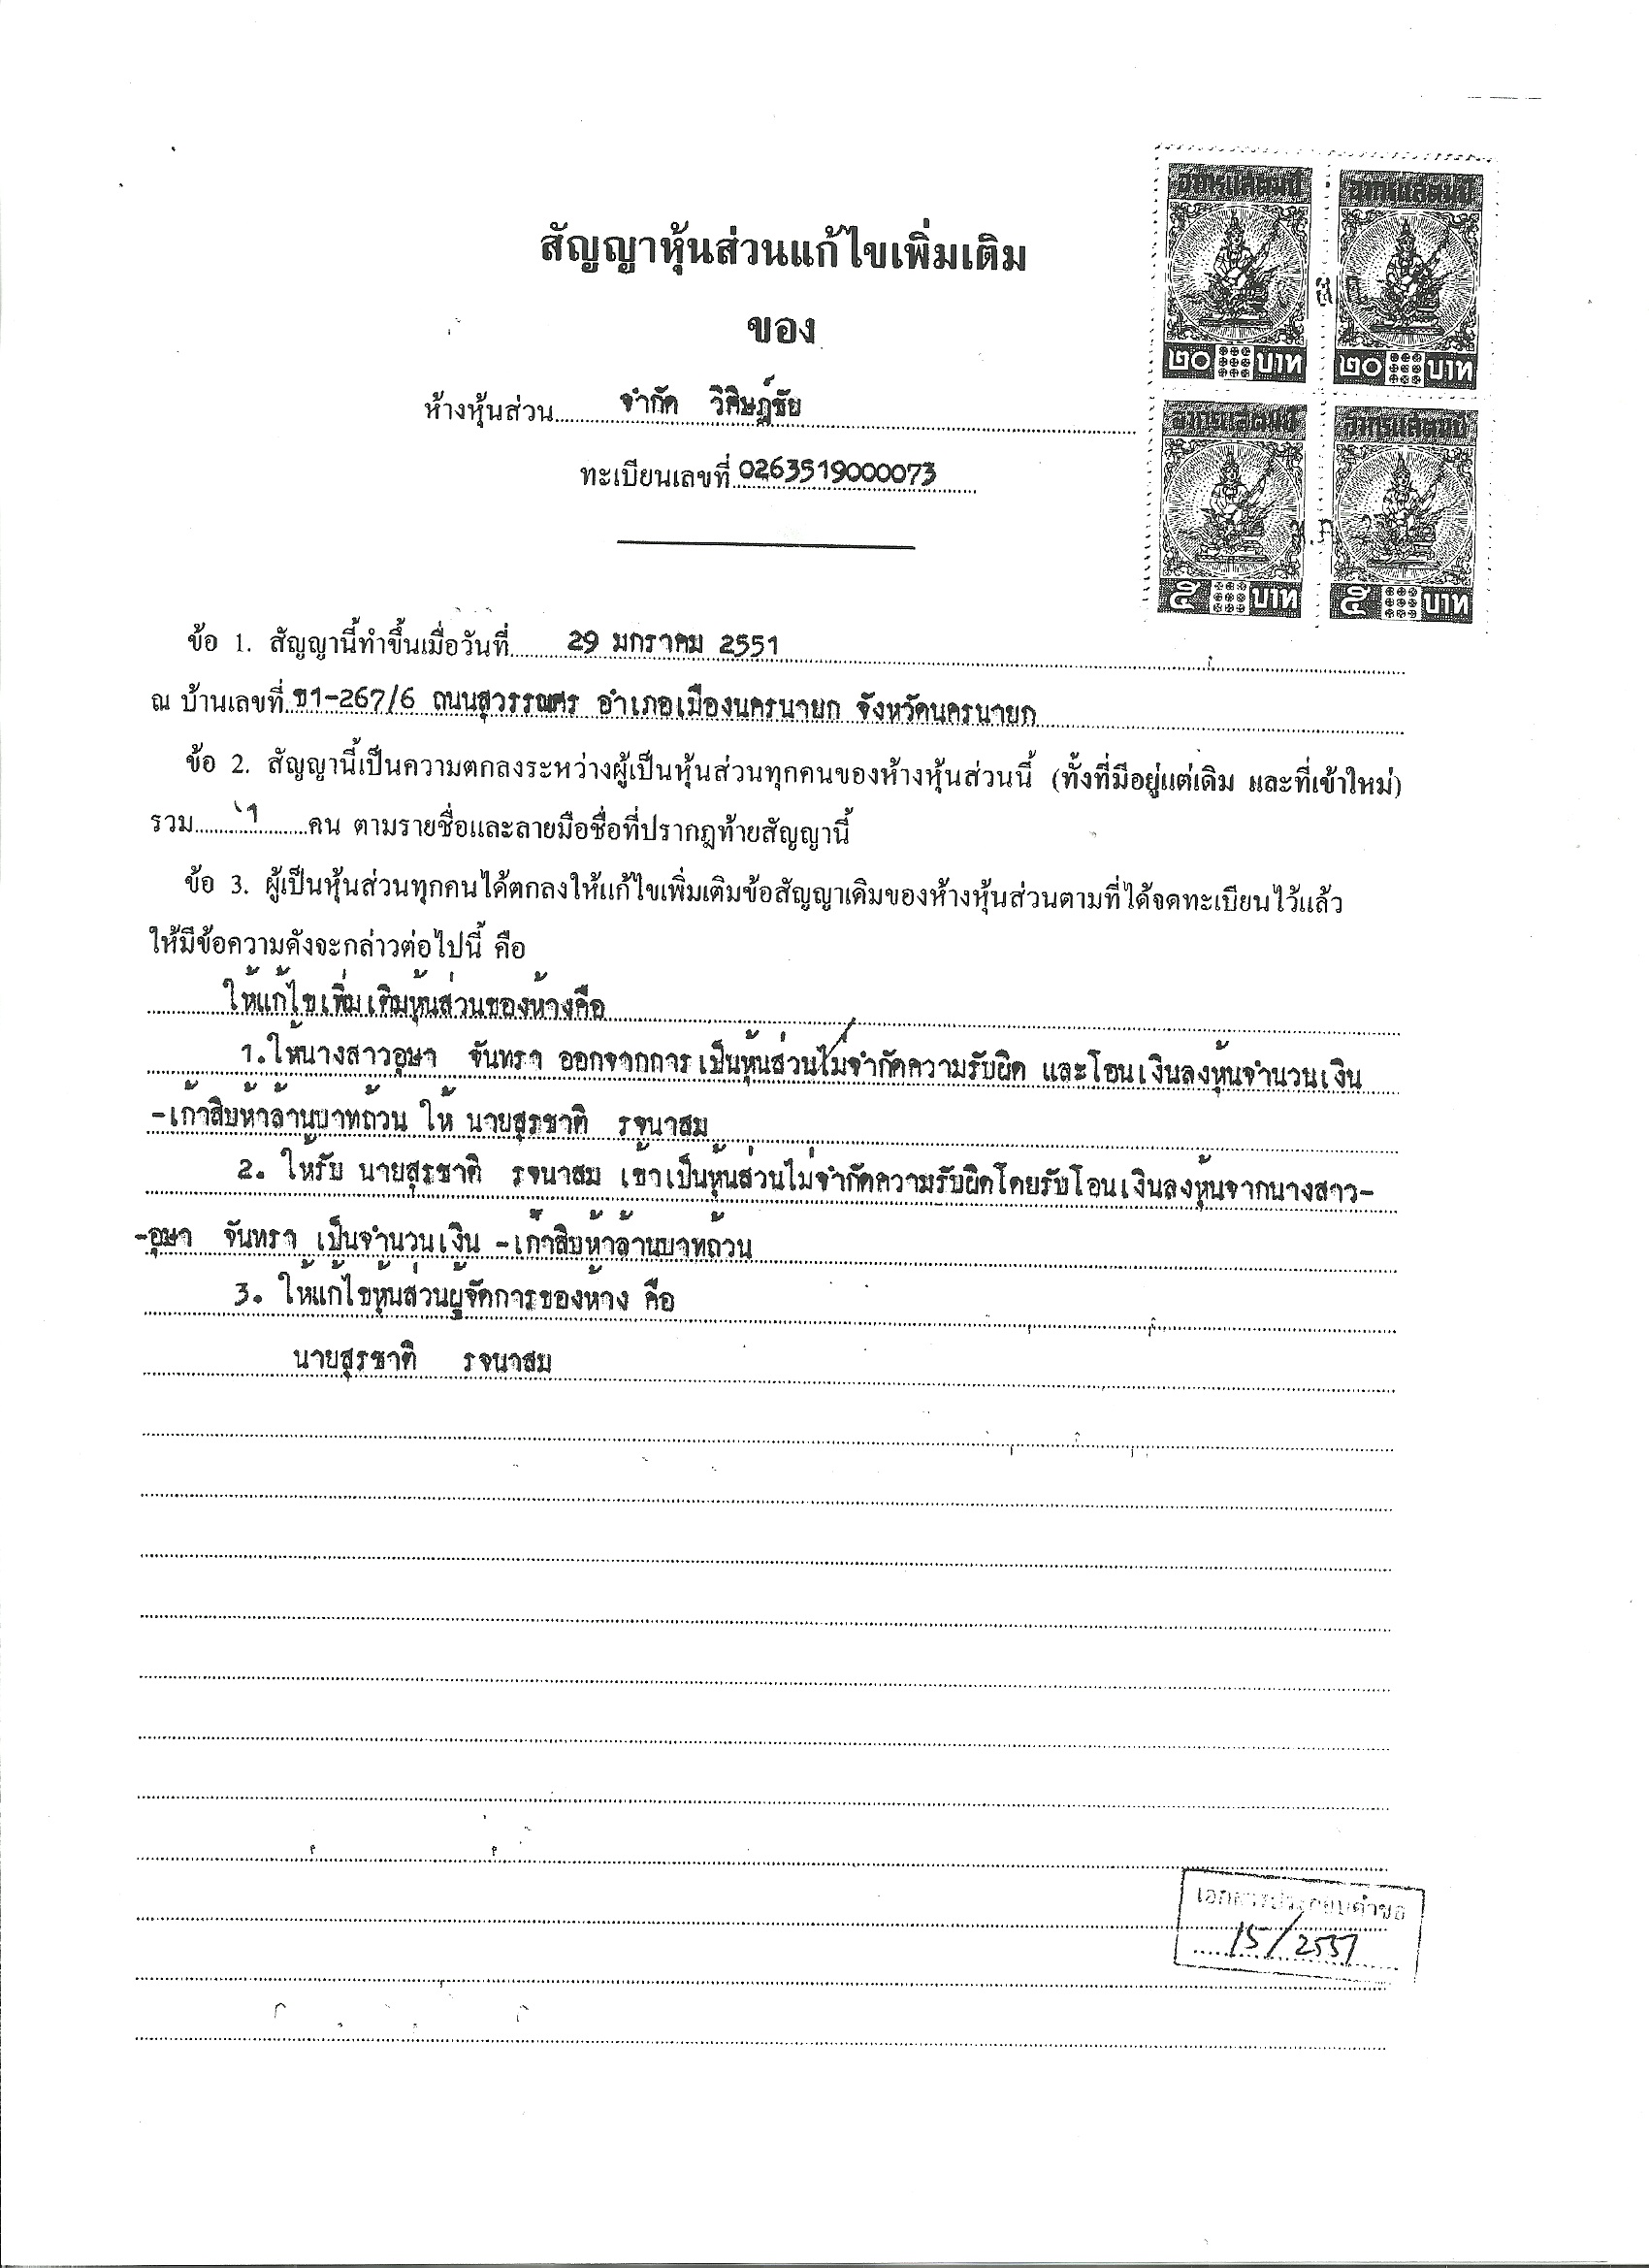 อากรแสตมป์ อากรแสตมป์
๒๐ บาท ๒๐ บาท
อากรแสตมป์ อากรแสตมป์
๕ บาท ๕ บาท
สัญญาหุ้นส่วนแก้ไขเพิ่มเติม
ของ
ห้างหุ้นส่วน จำกัด วิศิษฎ์ชัย
ทะเบียนเลขที่ 0263519000073
ข้อ 1. สัญญานี้ทำขึ้นเมื่อวันที่ 29 มกราคม 2551
ณ บ้านเลขที่ ข1-267/6 ถนนสุวรรณศร อำเภอเมืองนครนายก จังหวัดนครนายก
ข้อ 2. สัญญานี้เป็นความตกลงระหว่างผู้เป็นหุ้นส่วนทุกคนของห้างหุ้นส่วนนี้ (ทั้งที่มีอยู่แต่เดิม และที่เข้าใหม่)
รวม คน ตามรายชื่อและลายมือชื่อที่ปรากฏท้ายสัญญานี้
ข้อ 3. ผู้เป็นหุ้นส่วนทุกคนได้ตกลงให้แก้ไขเพิ่มเติมข้อสัญญาเดิมของห้างหุ้นส่วนตามที่ได้จดทะเบียนไว้แล้ว
ให้มีข้อความดังจะกล่าวต่อไปนี้ คือ
ให้แก้ไขเพิ่มเติมหุ้นส่วนของห้างคือ
1.ให้นางสาวอุษา จันทรา ออกจากการเป็นหุ้นส่วนไม่จำกัดความรับผิด และโอนเงินลงหุ้นจำนวนเงิน
-เก้าสิบห้าล้านบาทถ้วน ให้ นายสุรชาติ รจนาสม
2. ให้รับ นายสุรชาติ รจนาสม เข้าเป็นหุ้นส่วนไม่จำกัดความรับผิดโดยรับโอนเงินลงหุ้นจากนางสาว-
-อุษา จันทรา เป็นจำนวนเงิน -เก้าสิบห้าล้านบาทถ้วน
3. ให้แก้ไขหุ้นส่วนผู้จัดการของห้าง คือ
นายสุรชาติ รจนาสม
เอกสารประกอบคำขอ
15/2551